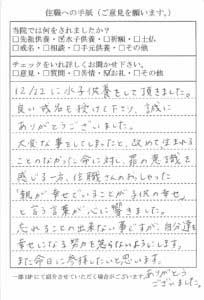 住職への手紙（ご意見を願います。）
当院では何をされましたか？
□先祖供養・□水子供養・□祈願・□土仏
□戒名・□相談・□手元供養・□その他
チェックをいれ詳しくお聞かせ下さい。
□意見・□質問・□苦情・□お礼・□その他
12/22に水子供養をして頂きました。
良い戒名を授けて下さり、誠に
ありがとうございました。
大変な事をしてしまったと、改めて生まれる
ことのなかった命に対し、罪の意識を
感じる一方、住職さんのおしゃった
「親が幸せでいることが子供の幸せ」
と言う言葉が心に響きました。
忘れることの出来ない事ですが、自分達も
幸せになる努力を怠らないようにします。
また今日に参拝したいと思います。
一部HPにて紹介をさせていただく場合がございます。
ありがとう
ございました。